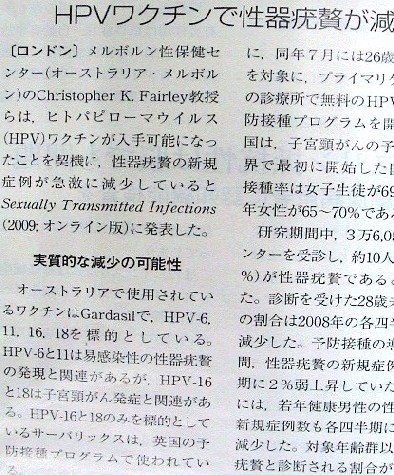 HPVワクチンで性器疣贅が減
〔ロンドン〕メルボルン性保健セ
ンター(オーストラリア・メルボル
ン)のChristopher K. Fairley教授
らは，ヒトパピローマウイルス
(HPV)ワクチンが入手可能になっ
たことを契機に，性器疣贅の新規
症例が急激に減少していると
Sexually Transmitted Infections
(2009; オンライン版)に発表した。
実質的な減少の可能性
オーストラリアで使用されてい
るワクチンはGardasilで，HPV-6,
11, 16, 18を標的としている。
HPV-6と11は易感染性の性器疣贅
の発現と関連があるが，HPV-16
と18は子宮頸がん発症と関連があ
る。HPV-16と18のみを標的として
いるサーバリックスは，英国の予
防接種プログラムで使われてい
る。
に，同年7月には26歳
を対象に，プライマリケ
の診療所で無料のHPV
防接種プログラムを開
国は，子宮頸がんの予
界で最初に開始した国
接種率は女子生徒が69
年女性が65～70%であ
研究期間中，3万6,05
ンターを受診し，約10人
%)が性器疣贅である
た。診断を受けた28歳未
の割合は2008年の各四半
減少した。予防接種の導
間，性器疣贅の新規症例
期に2%弱上昇していた
には，若年健康男性の性
新規症例数も各四半期に
減少した。対象年齢群以
疣贅と診断される割合が